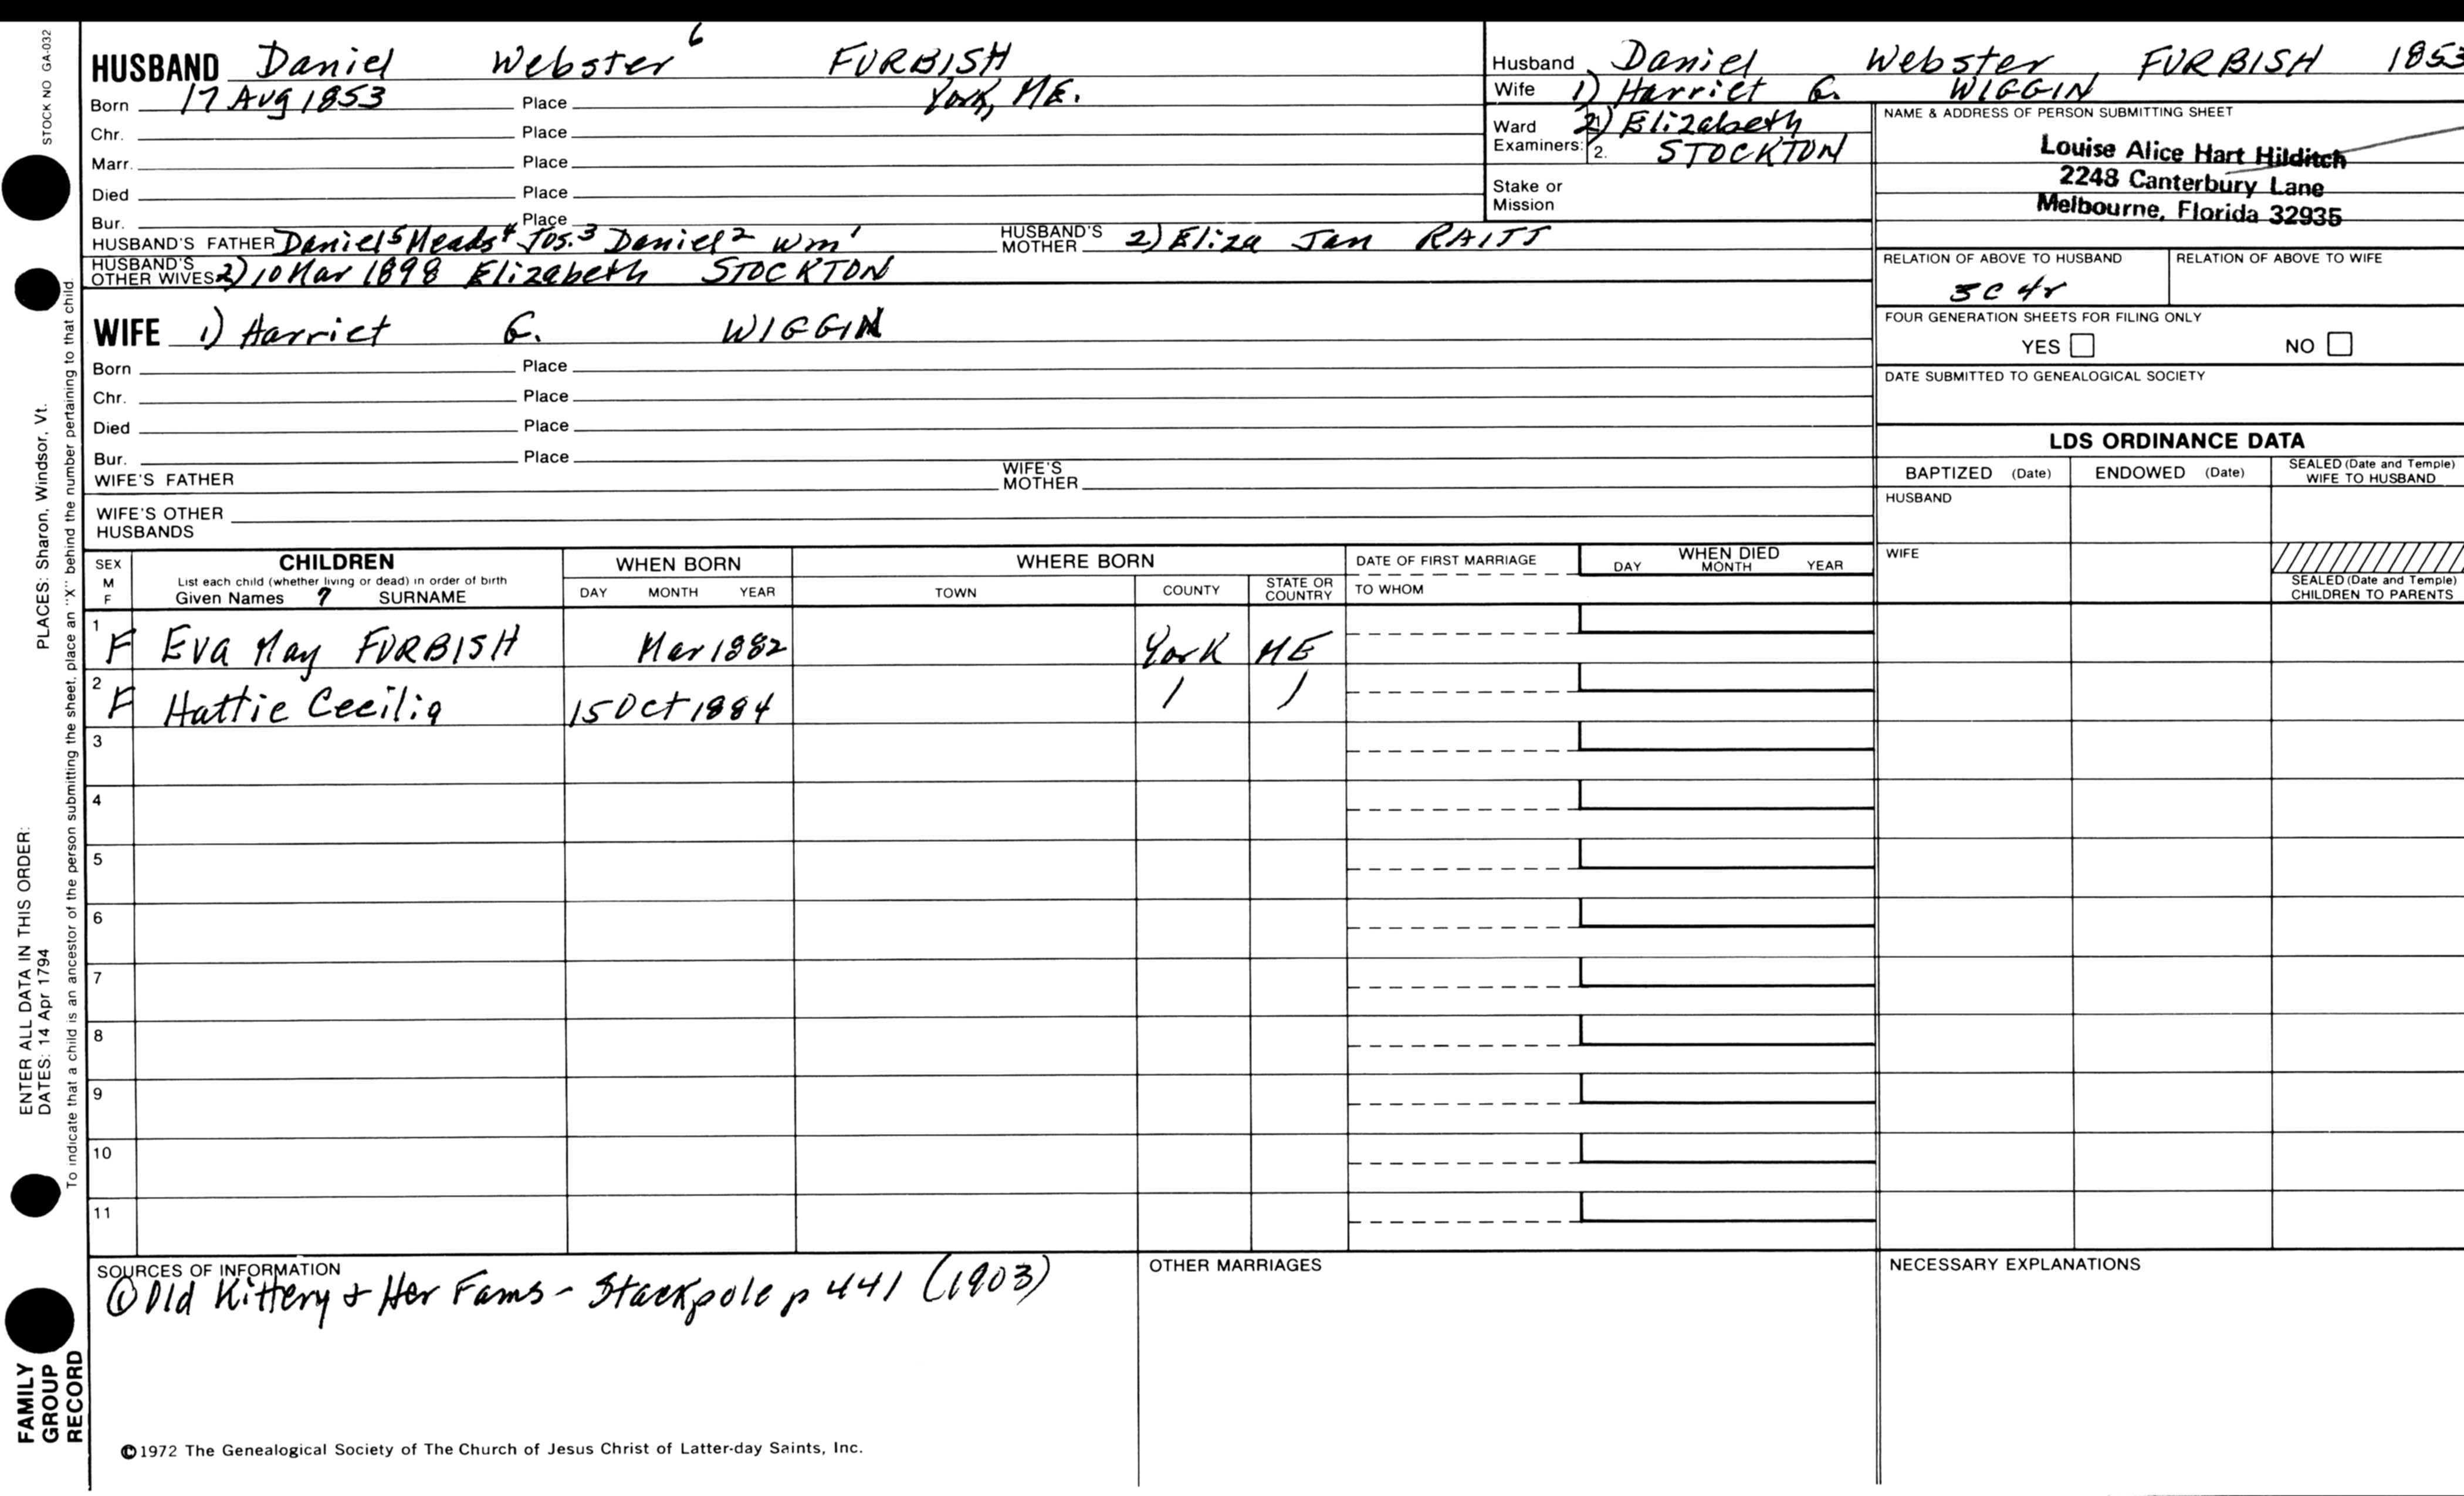 STOCK NO GA-032
HUSBAND Daniel Webster 6 FURBISH
Born 17 Aug 1853 Place York, ME.
Chr. Place
Marr. Place
Died Place
Bur. Place
HUSBAND'S FATHER Daniel 5 Meads 4 Jos. 3 Daniel 2 Wm 1 HUSBAND'S MOTHER 2) Eliza Jan RAITT
HUSBAND'S OTHER WIVES 2) 10 Mar 1898 Elizabeth STOCKTON
WIFE 1) Harriet G. WIGGIN
Born Place
Chr. Place
Died Place
Bur. Place
WIFE'S FATHER WIFE'S MOTHER
WIFE'S OTHER HUSBANDS
Husband Daniel Webster FURBISH 1853
Wife 1) Harriet G. WIGGIN
Ward 2) Elizabeth
Examiners: 2. STOCKTON
Stake or Mission
NAME & ADDRESS OF PERSON SUBMITTING SHEET
Louise Alice Hart Hilditch
2248 Canterbury Lane
Melbourne, Florida 32935
RELATION OF ABOVE TO HUSBAND RELATION OF ABOVE TO WIFE
3C 4r
FOUR GENERATION SHEETS FOR FILING ONLY
YES NO
DATE SUBMITTED TO GENEALOGICAL SOCIETY
LDS ORDINANCE DATA
BAPTIZED (Date) ENDOWED (Date) SEALED (Date and Temple) WIFE TO HUSBAND
HUSBAND
WIFE
SEALED (Date and Temple) CHILDREN TO PARENTS
SEX M F CHILDREN WHEN BORN WHERE BORN DATE OF FIRST MARRIAGE WHEN DIED
List each child (whether living or dead) in order of birth
Given Names 7 SURNAME DAY MONTH YEAR TOWN COUNTY STATE OR COUNTRY TO WHOM DAY MONTH YEAR
1 F Eva May FURBISH Mar 1882 York ME
2 F Hattie Cecilia 15 Oct 1884 / /
3
4
5
6
7
8
9
10
11
SOURCES OF INFORMATION OTHER MARRIAGES NECESSARY EXPLANATIONS
① Old Kittery & Her Fams - Stackpole p 441 (1903)
©1972 The Genealogical Society of The Church of Jesus Christ of Latter-day Saints, Inc.
ENTER ALL DATA IN THIS ORDER:
DATES: 14 Apr 1794 PLACES: Sharon, Windsor, Vt.
To indicate that a child is an ancestor of the person submitting the sheet, place an "X" behind the number pertaining to that child
FAMILY
GROUP
RECORD